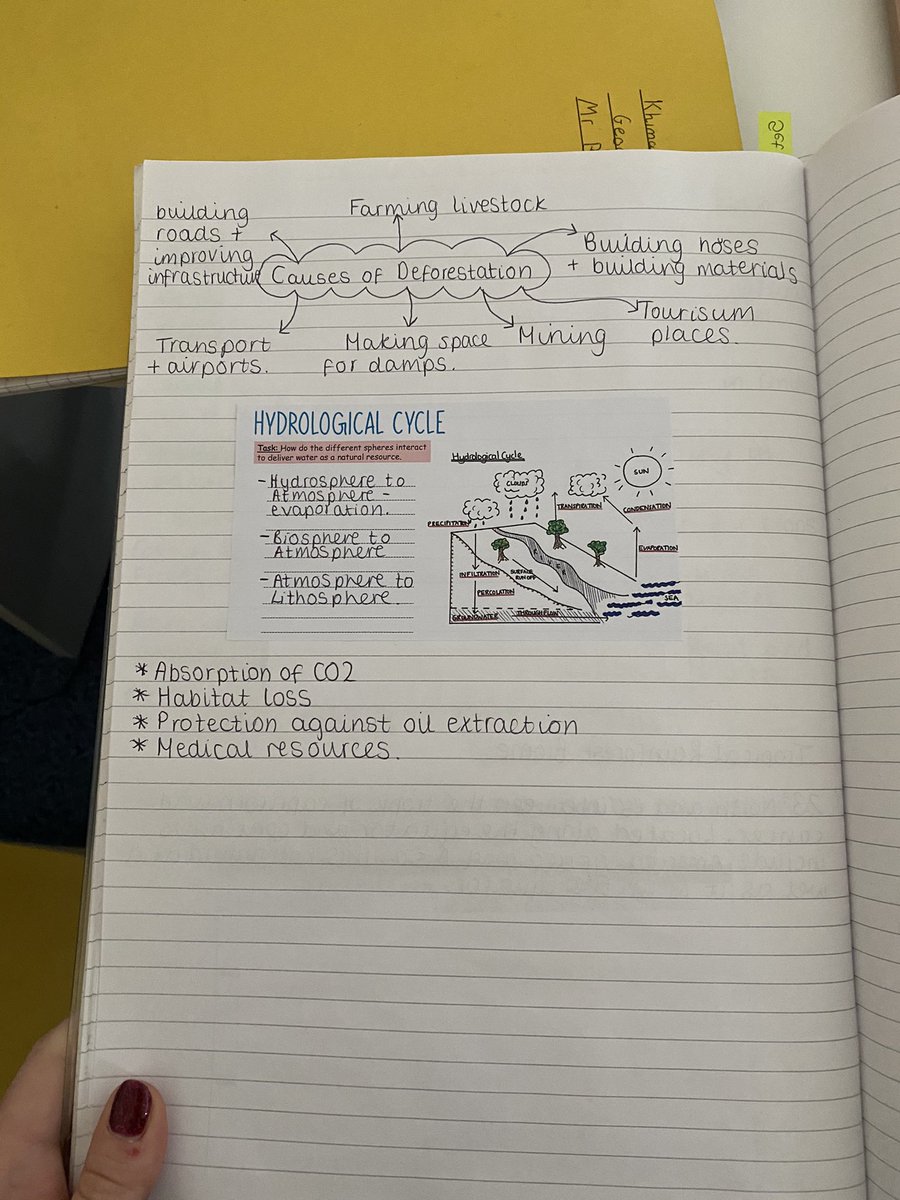 Khuma
Geo
Mr
building
roads +
improving
infrastructure
Farming livestock
Building hoses
+ building materials
Causes of Deforestation
Transport
+ airports.
Making space
for damps.
Mining
Tourisum
places.
HYDROLOGICAL CYCLE
Task: How do the different spheres interact
to deliver water as a natural resource.
- Hydrosphere to
Atmosphere -
evaporation.
- Biosphere to
Atmosphere
- Atmosphere to
Lithosphere.
Hydrological Cycle
SUN
CLOUD?
TRANSPIRATION
CONDENSATION
PRECIPITATION
EVAPORATION
INFILTRATION
SURFACE
RUN OFF
PERCOLATION
SEA
GROUNDWATER
THROUGHFLOW
* Absorption of CO2
* Habitat loss
* Protection against oil extraction
* Medical resources.